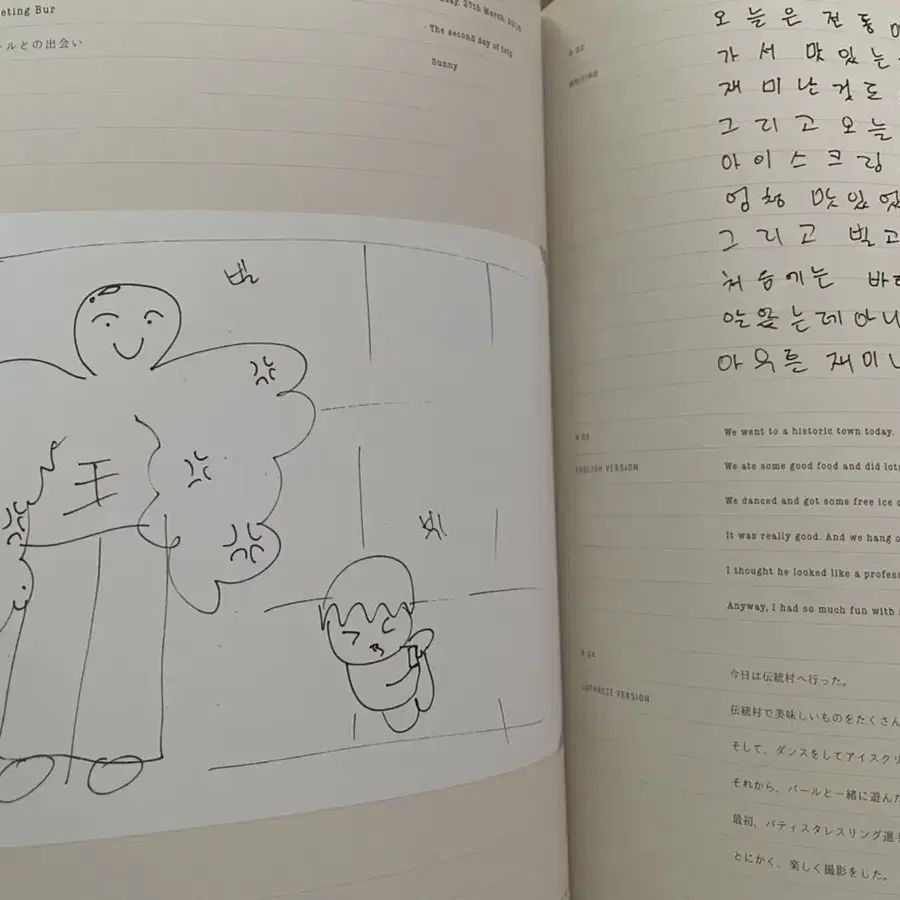 eting Bur
ルとの出会い
27th March,
The second day of trip
Sunny
王
# 02
WRITING
오늘은 전통
가서 맛있는
재미난 것도
그리고 오늘
아이스크림
엄청 맛있었
그리고
처음에는 바
알았는데 아니
재미
# 03
ENGLISH VERSION
We went to a historic town today.
We ate some good food and did lots
We danced and got some free ice c
It was really good. And we hang o
I thought he looked like a profess
Anyway, I had so much fun with
# 04
JAPANESE VERSION
今日は伝統村へ行った。
伝統村で美味しいものをたくさん
そして、ダンスをしてアイスクリ
それから、バールと一緒に遊んた
最初、バティスタレスリング選手
とにかく、楽しく撮影をした。